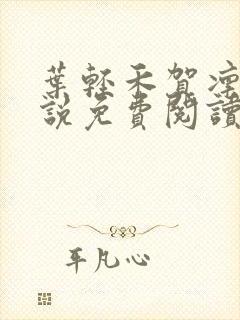 葉輕禾賀凜
說免費閱讀
平凡心